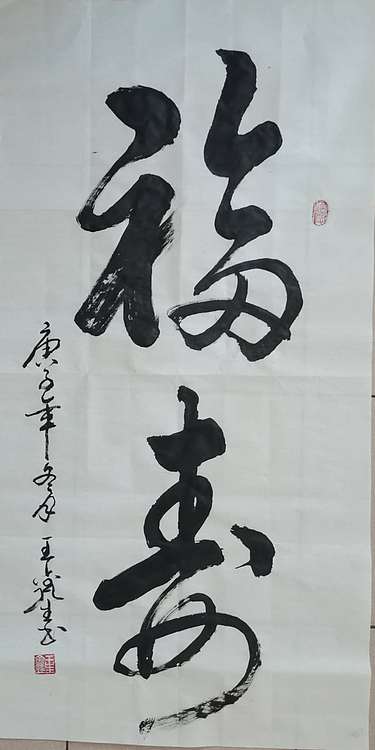 福寿
庚子年冬月 王